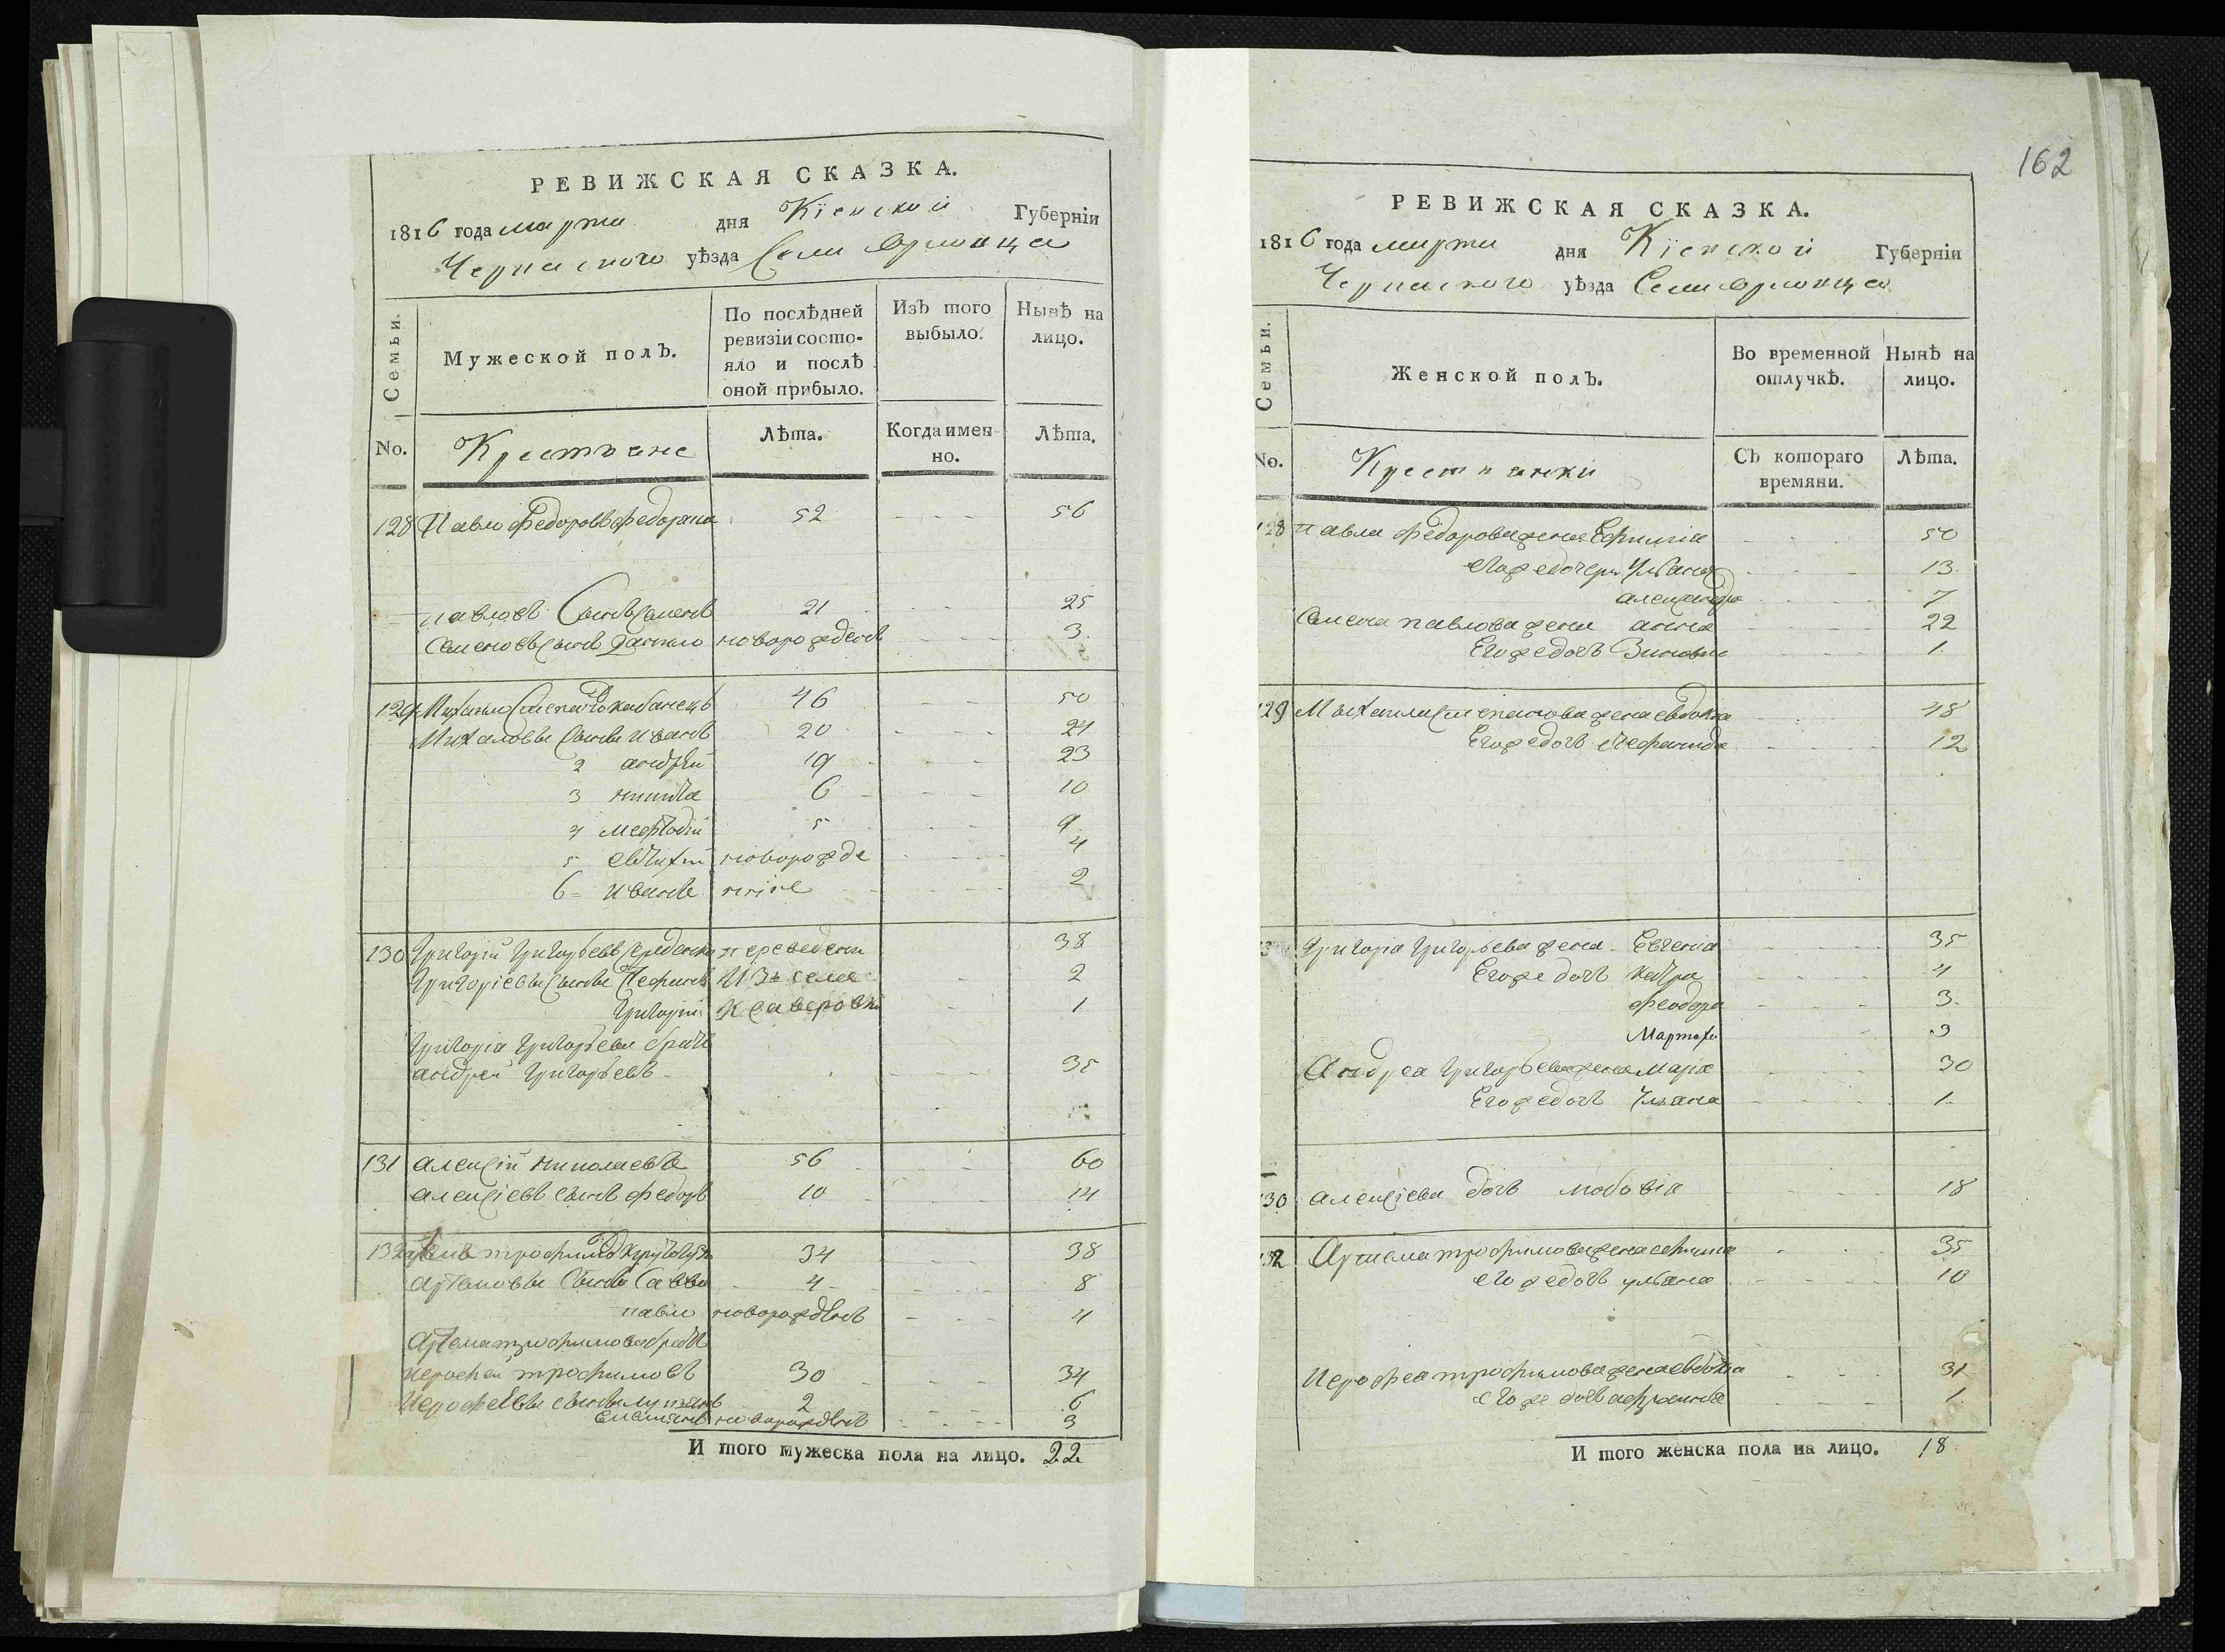 РЕВИЖСКАЯ СКАЗКА.
1816 года марта дня Кіевской Губерніи
Черкаского уѣзда Села Орловца
Семьи.
Мужеской полъ.
По послѣдней ревизіи состояло и послѣ оной прибыло.
Изъ того выбыло.
Нынѣ на лицо.
No.
Крестьяне
Лѣта.
Когда именно.
Лѣта.
128 Павло Федоровъ 52 56
павловъ Сынъ Семенъ 21 25
Семеновъ Сынъ Данило новорожденъ 3
129 Михаило 46 50
Михаиловы Сыны Иванъ 20 24
2 андрей 19 23
3 никита 6 10
4 мефодій 5 9
5 новорожде 4
6 иванъ нніе 2
130 Григорій Григорьевъ переведени 38
Григоріевы Сыны Изъ села 2
Григорій 1
Григорія Григорьева братъ
андрей Григорьевъ 35
131 алексій николаевъ 56 60
алексіевъ сынъ федоръ 10 14
132 трофимовъ 34 38
Артемовы Сыны Савва 4 8
павло новорожденъ 4
Артема трофимова братъ
иерофей трофимовъ 30 34
Иерофеевы сыны 2 6
Емелянъ новорожденъ 3
И того мужеска пола на лицо. 22
162
РЕВИЖСКАЯ СКАЗКА.
1816 года марта дня Кіевской Губерніи
Черкаского уѣзда Села Орловца
Семьи.
Женской полъ.
Во временной отлучкѣ.
Нынѣ на лицо.
No.
Крестьянки
Съ котораго времяни.
Лѣта.
128 павла Федорова жена Ефимія 50
его же дочери Ульяна 13
александра 7
Семена павлова жена анна 22
Его же дочь Зиновія 1
129 Михаила Степанова жена евдокія 48
Его же дочь 12
Григорія Григорьева жена Евгенія 35
Его же дочь 4
феодора 3
Марта 3
Андрея Григорьева жена Марія 30
Его же дочь Ульяна 1
130 алексіева дочь 18
132 Артема трофимова жена 35
его же дочь ульяна 10
Иерофея трофимова жена евдокія 31
его же дочь 1
И того женска пола на лицо. 18